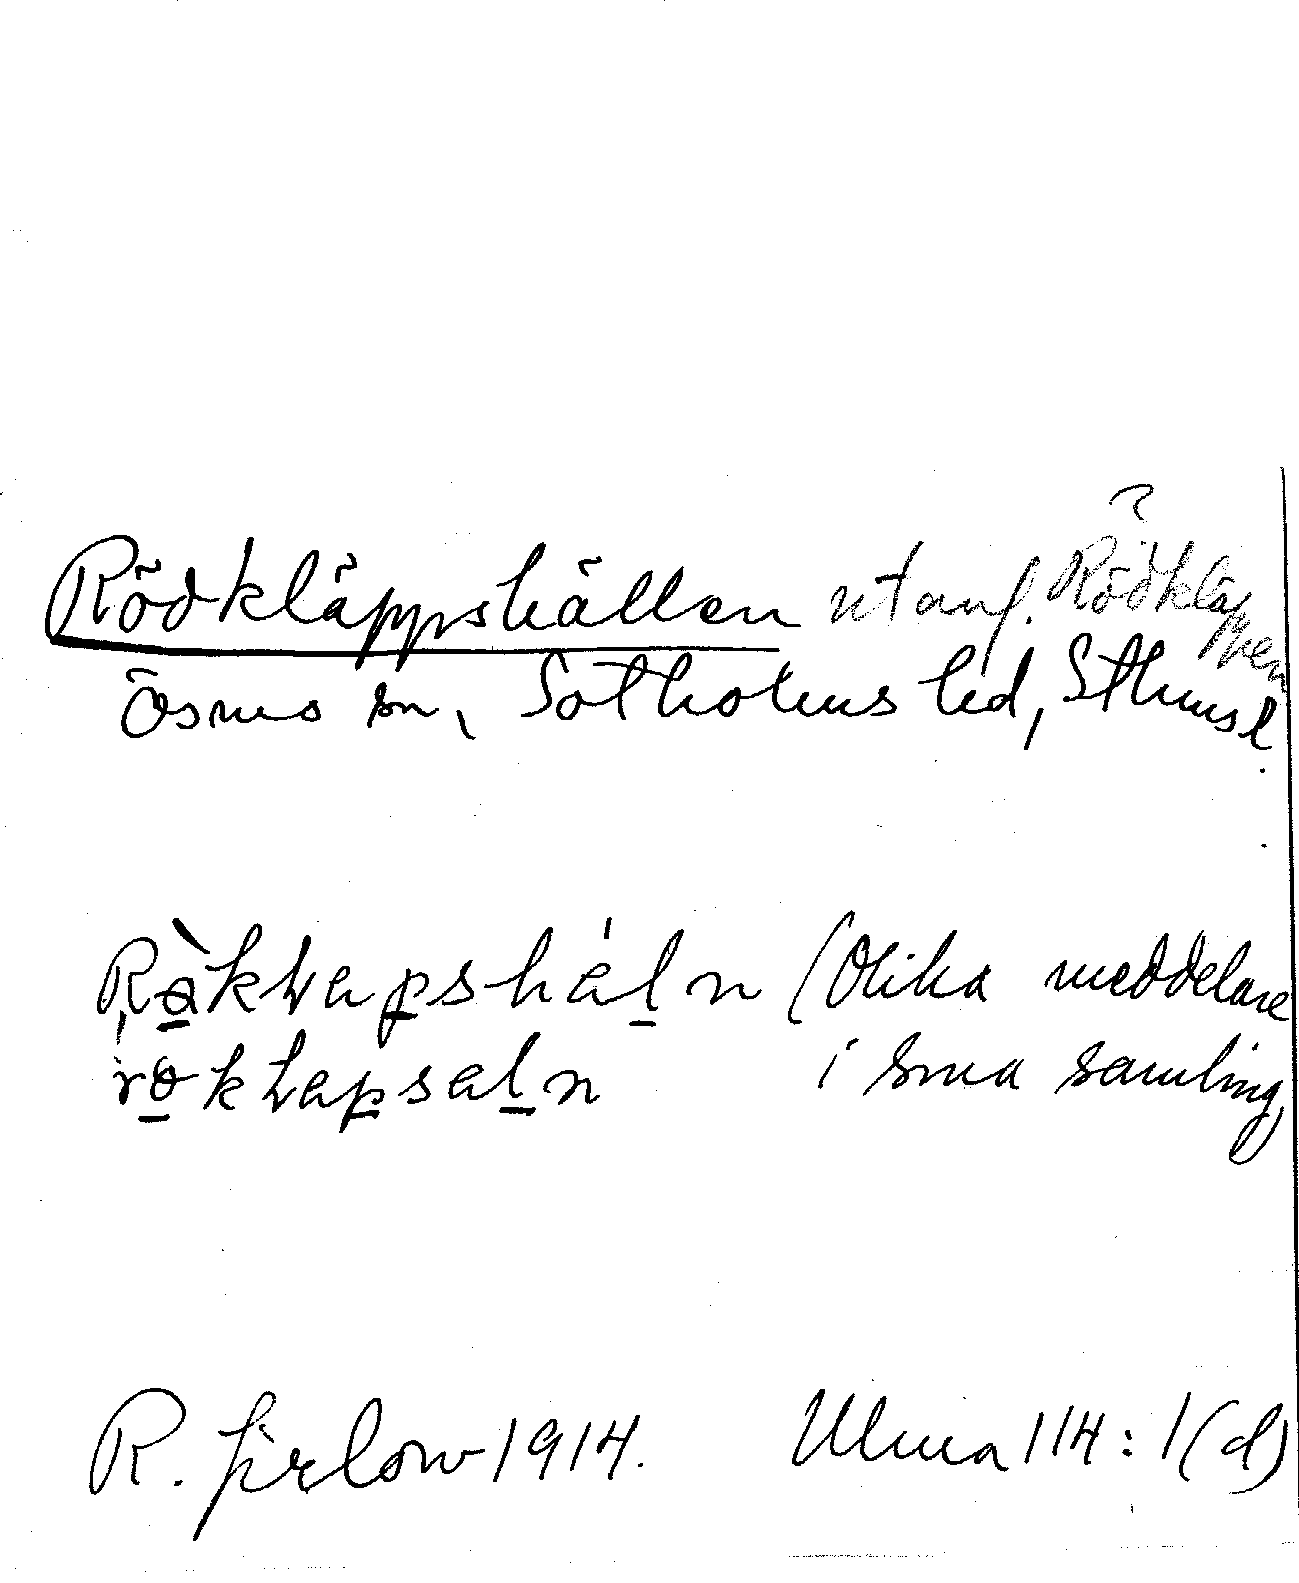 ?
Rödkläppshällen utanf. Rödkläppen
Ösmo sn, Sotholms hd, Sthmsl.
(Olika meddelare
i sma samling,
R. Jirlow 1914. Ulma 114:1(d)